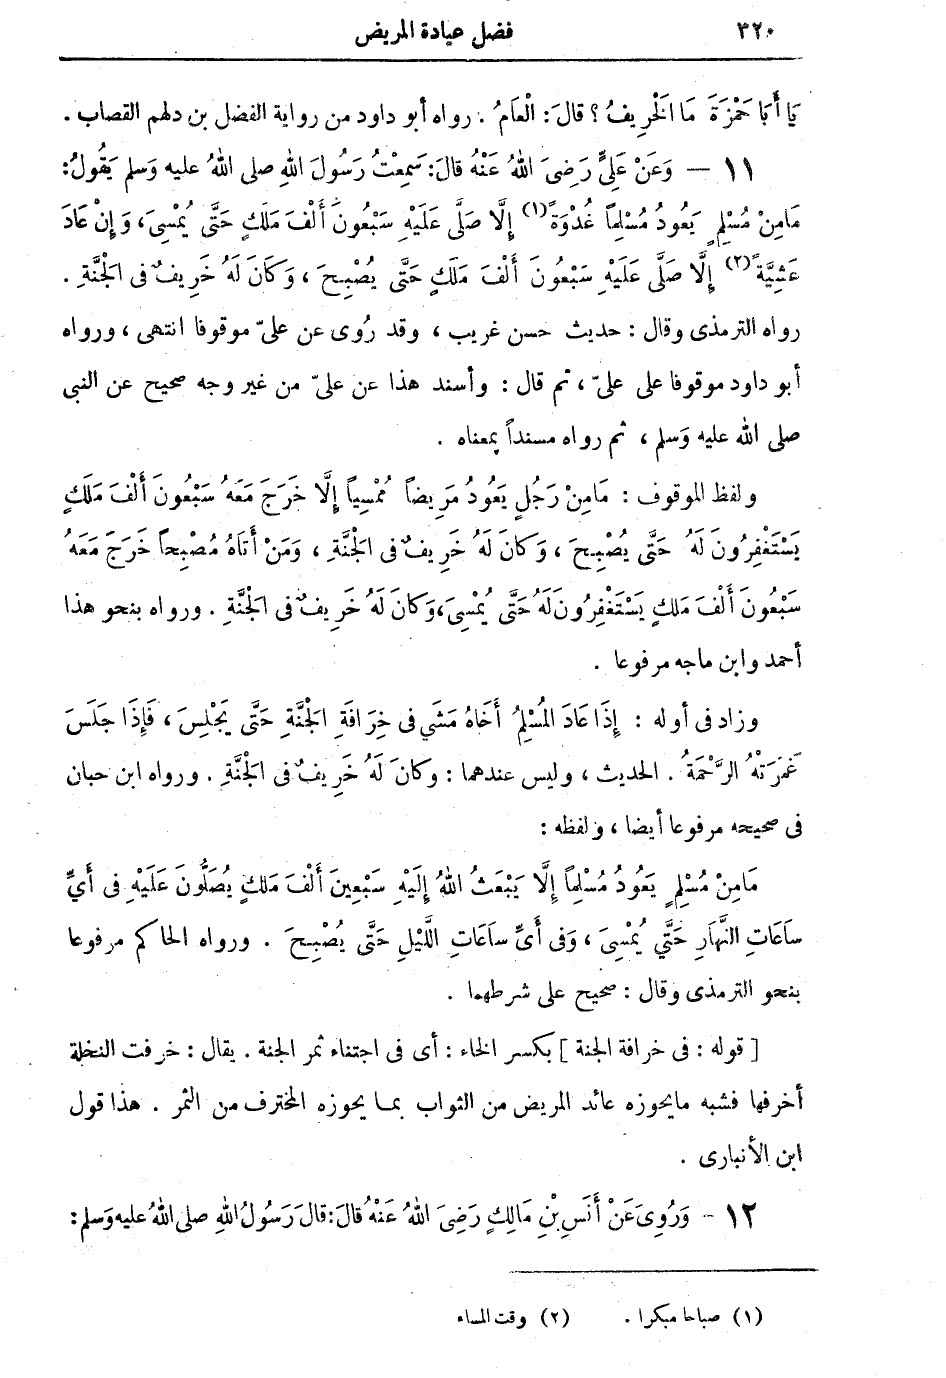 ٣٢٠ فضل عيادة المريض
يَا أَبَا حَمْزَةَ مَا الْخَرِيفُ؟ قَالَ: الْعَامُ . رواه أبو داود من رواية الفضل بن دلهم القصاب .
١١ — وَعَنْ عَلِيٍّ رَضِىَ اللهُ عَنْهُ قَالَ: سَمِعْتُ رَسُولَ اللهِ صلى اللهُ عليه وَسلم يَقُولُ:
مَامِنْ مُسْلِمٍ يَعُودُ مُسْلِمًا غُدْوَةً (١) إِلَّا صَلَّى عَلَيْهِ سَبْعُونَ أَلْفَ مَلَكٍ حَتَّى يُمْسِىَ، وَإِنْ عَادَ
عَشِيَّةً (٢) إِلَّا صَلَّى عَلَيْهِ سَبْعُونَ أَلْفَ مَلَكٍ حَتَّى يُصْبِحَ ، وَكَانَ لَهُ خَرِيفٌ فى الْجَنَّةِ .
رواه الترمذى وقال : حديث حسن غريب ، وقد رُوى عن علىّ موقوفا انتهى ، ورواه
أبو داود موقوفا على علىّ ، ثم قال : وأسند هذا عن علىّ من غير وجه صحيح عن النبى
صلى الله عليه وَسلم ، ثم رواه مسنداً بمعناه .
ولفظ الموقوف : مَامِنْ رَجُلٍ يَعُودُ مَرِيضاً مُمْسِياً إِلَّا خَرَجَ مَعَهُ سَبْعُونَ أَلْفَ مَلَكٍ
يَسْتَغْفِرُونَ لَهُ حَتَّى يُصْبِحَ ، وَكَانَ لَهُ خَرِيفٌ فى الْجَنَّةِ ، وَمَنْ أَتَاهُ مُصْبِحاً خَرَجَ مَعَهُ
سَبْعُونَ أَلْفَ مَلَكٍ يَسْتَغْفِرُونَ لَهُ حَتَّى يُمْسِىَ، وَكَانَ لَهُ خَرِيفٌ فى الْجَنَّةِ . ورواه بنحو هذا
أحمد وابن ماجه مرفوعا .
وزاد فى أوله : إِذَا عَادَ الْمُسْلِمُ أَخَاهُ مَشَى فى خِرَافَةِ الْجَنَّةِ حَتَّى يَجْلِسَ ، فَإِذَا جَلَسَ
غَمَرَتْهُ الرَّحْمَةُ . الحديث ، وليس عندهما : وكَانَ لَهُ خَرِيفٌ فى الْجَنَّةِ . ورواه ابن حبان
فى صحيحه مرفوعا أيضا ، ولفظه :
مَامِنْ مُسْلِمٍ يَعُودُ مُسْلِمًا إِلَّا يَبْعَثُ اللهُ إِلَيْهِ سَبْعِينَ أَلْفَ مَلَكٍ يُصَلُّونَ عَلَيْهِ فى أَىِّ
سَاعَاتِ النَّهَارِ حَتَّى يُمْسِىَ ، وَفى أَىِّ سَاعَاتِ اللَّيْلِ حَتَّى يُصْبِحَ . ورواه الحاكم مرفوعا
بنحو الترمذى وقال : صحيح على شرطهما .
[ قوله : فى خرافة الجنة ] بكسر الخاء : أى فى اجتناء ثمر الجنة . يقال : خرفت النخلة
أخرفها فشبه مايحوزه عائد المريض من الثواب بما يحوزه المخترف من الثمر . هذا قول
ابن الأنبارى .
١٢ - وَرُوِىَ عَنْ أَنَسِ بْنِ مَالِكٍ رَضِىَ اللهُ عَنْهُ قَالَ: قَالَ رَسُولُ اللهِ صلى اللهُ عليه وَسلم:
(١) صباحا مبكرا . (٢) وقت المساء